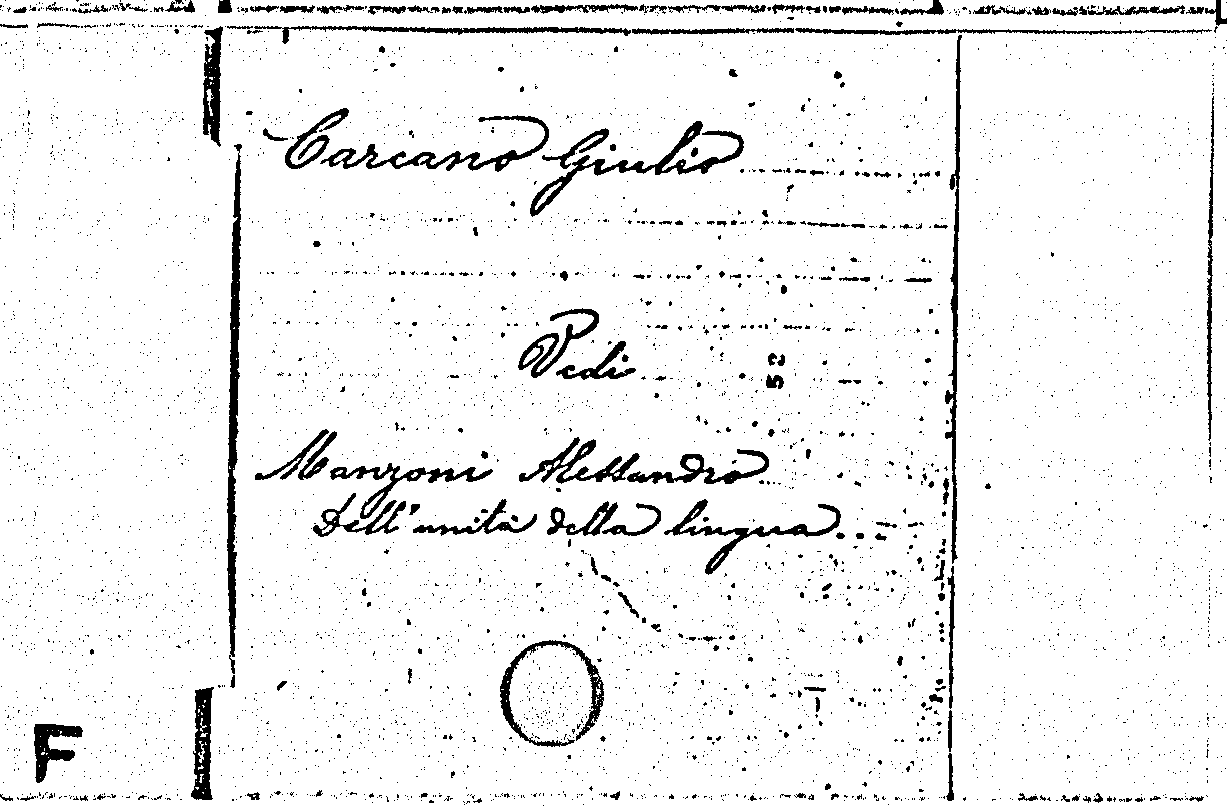 Carcano Giulio
Vedi
52
Manzoni Alessandro
Dell'unità della lingua...
F